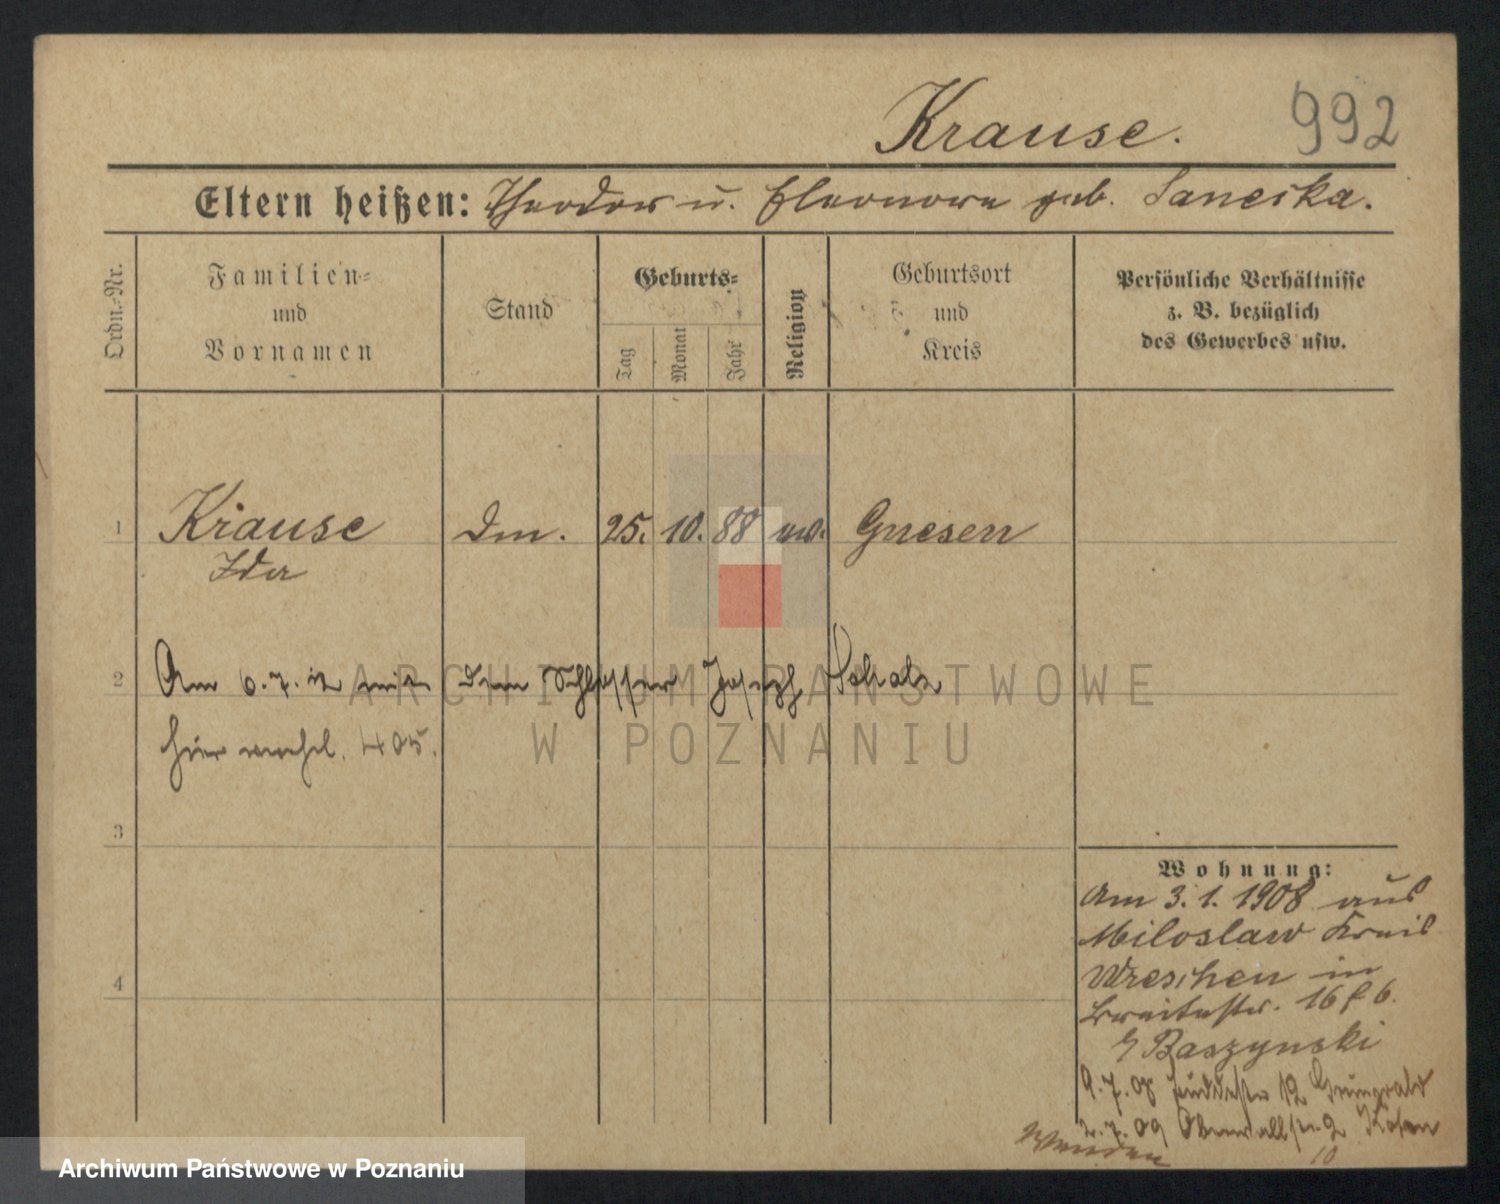 Krause. 992
Eltern heißen: Theodor u. Eleonore geb. Saneska.
Ordn.-Nr.
Familien-
und
Vornamen
Stand
Geburts-
Tag
Monat
Jahr
Religion
Geburtsort
und
Kreis
Persönliche Verhältnisse
z. B. bezüglich
des Gewerbes usw.
1 Krause Dm. 25. 10. 88 Gnesen
Ida
2 Am 6.7.12 mit dem Schlosser Joseph
hier verehel. 405.
3
4
Wohnung:
Am 3.1.1908 aus
Miloslaw Kreis
Wreschen in
Breitestr. 16
Baszynski
9.7.08 12 Grünwald
2.7.09 Oberwallstr. 2
10
ARCHIWUM PAŃSTWOWE
W POZNANIU
Archiwum Państwowe w Poznaniu